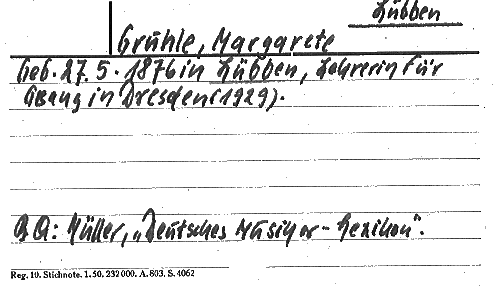 Lübben
Gruhle, Margarete
Geb. 27. 5. 1876 in Lübben, Lehrerin für
Gesang in Dresden (1929).
Müller, „Deutsches Musiker-Lexikon".
Reg. 10. Stichnote. 1. 50. 232 000. A. 803. S. 4062